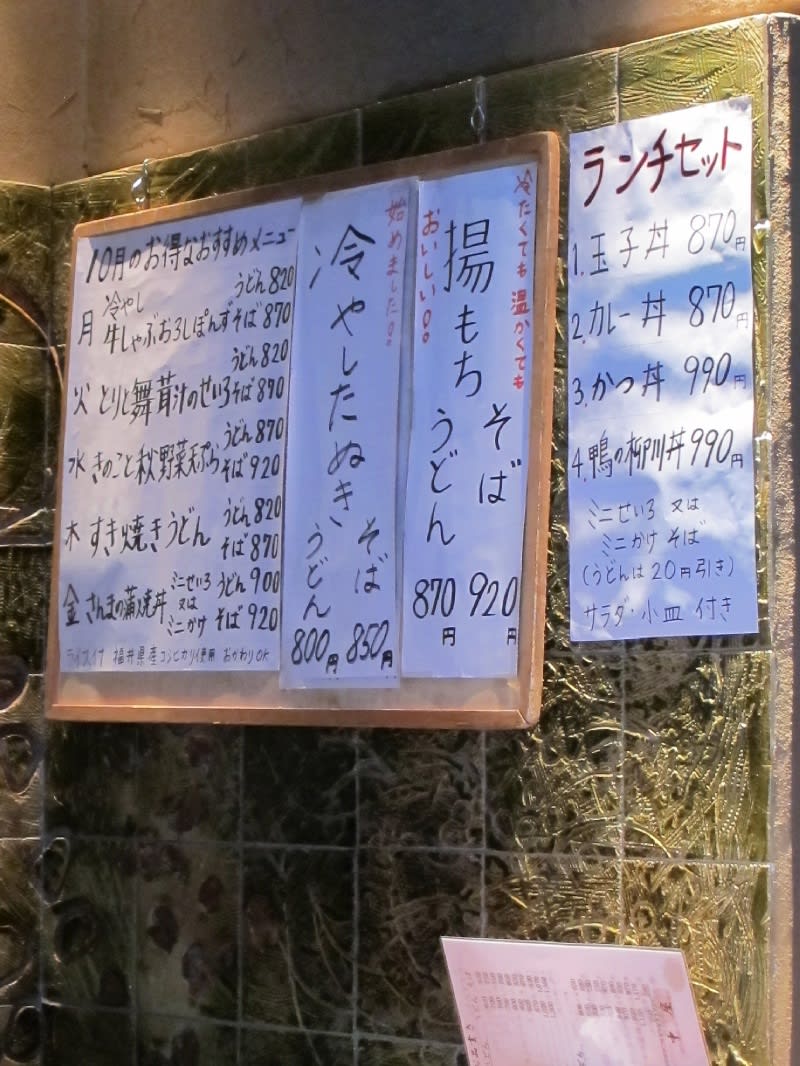 10月のお得なおすすめメニュー
月 冷やし うどん 820
牛しゃぶおろしぽんず そば 870
うどん 820
火 とりと舞茸汁のせいろ そば 870
うどん 870
水 きのこと秋野菜天ぷら そば 920
うどん 820
木 すき焼きうどん そば 870
金 さんまの蒲焼丼 ミニせいろ 又は ミニかけ うどん 900 そば 920
福井県産コシヒカリ使用 おかわりOK
始めました!!
冷やしたぬき
そば 850円
うどん 800円
冷たくても 温かくても
おいしい!!
揚もち
そば 920円
うどん 870円
ランチセット
1.玉子丼 870円
2.カレー丼 870円
3.かつ丼 990円
4.鴨の柳川丼 990円
ミニせいろ 又は
ミニかけ そば
(うどんは20円引き)
サラダ・小皿 付き